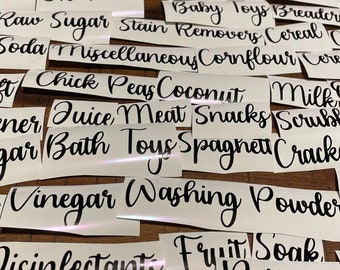 Baby Toys Breader
Raw Sugar Stain Removers Cereal
Soda Miscellaneous Cornflour Cere
Chick Peas Coconut Milk
Juice Meat Snacks Scrubb
ener
gar Bath Toys Spagnett Cracke
Vinegar Washing Powder
Disinfectant Fruit Soak